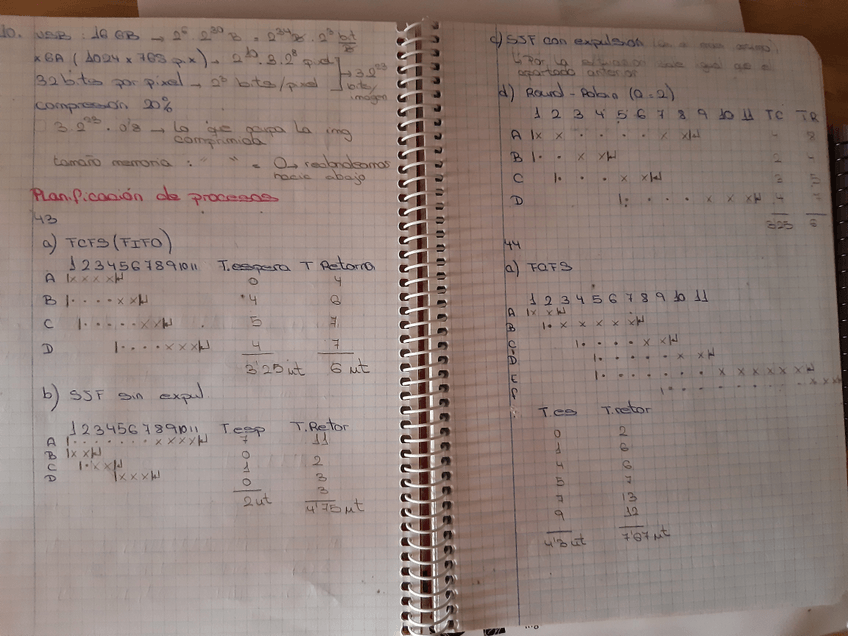 10. USB: 16 GB → 2⁴ 2³⁰ B = 2³⁴ B · 2³ bit/B
XGA (1024 x 768 px) → 2¹⁰ · 3 · 2⁸ pxl
32 bits por pixel → 2⁵ bits/pixel
→ 3·2²³ bits/imagen
compresión 20%
3·2²³ · 0'8 → lo que ocupa la img comprimida
tamaño memoria : " " = → redondeamos
hacia abajo
Planificación de procesos
43
a) FCFS (FIFO)
1 2 3 4 5 6 7 8 9 10 11 T.espera T Retorno
A |x x x x| 0 4
B |· · · · x x| 4 6
C |· · · · · x x| 5 7
D |· · · · x x x| 4 7
3'25 ut 6 ut
b) SJF sin expul.
1 2 3 4 5 6 7 8 9 10 11 T.esp T.Retor
A |· · · · · · · x x x x| 7 11
B |x x| 0 2
C |· x x| 1 3
D |x x x| 0 3
2 ut 4'75 ut
c) SSF con expulsión
apartado anterior
d) Round-Robin (Q=2)
1 2 3 4 5 6 7 8 9 10 11 TC TR
A |x x · · · · x x| 4 8
B |· · x x| 2 4
C |· · · · x x| 3 5
D |· · · · x x x| 4 7
3'25 6
44
a) FCFS
1 2 3 4 5 6 7 8 9 10 11
A |x x|
B |· x x x x x|
C |· · · · x x|
D |· · · · · x x|
E |· · · · · · · x x x x x x|
F |· · · · · · · · · x x x
T.es T.retor
0 2
1 6
4 6
5 7
7 13
9 12
4'3 ut 7'67 ut